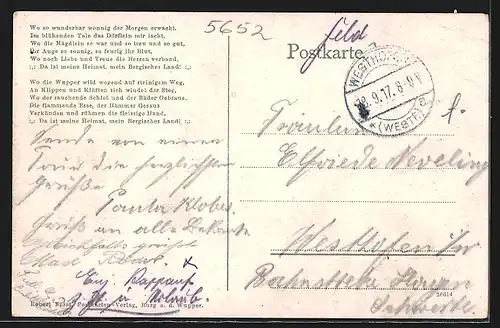 Wo so wunderbar wonnig der Morgen erwacht,
Im blühenden Tale das Dörflein mir lacht,
Wo die Mägdlein so wahr und so treu und so gut,
Ihr Auge so sonnig, so feurig ihr Blut,
Wo noch Liebe und Treue die Herzen verband,
|: Da ist meine Heimat, mein Bergisches Land! :|
Wo die Wupper wild wogend auf steinigem Weg,
An Klippen und Klüften sich windet der Steg,
Wo der rauchende Schlot und der Räder Gebraus,
Die flammende Esse, der Hämmer Gesaus
Verkünden und rühmen die fleissige Hand,
|: Da ist meine Heimat, mein Bergisches Land! :|
5652
Feld
Postkarte
WESTHOFEN
28.9.17. 8-9 V
* (WESTF) a
Sende von einer
Tour die herzlichsten
Grüße
Paula Klobes.
Gruß an alle Bekannte
Gleichfalls grüßt
Fräulein
Elfriede Neveling
Westhofen i/W
Schwerte
Verlag, Burg a. d. Wupper.